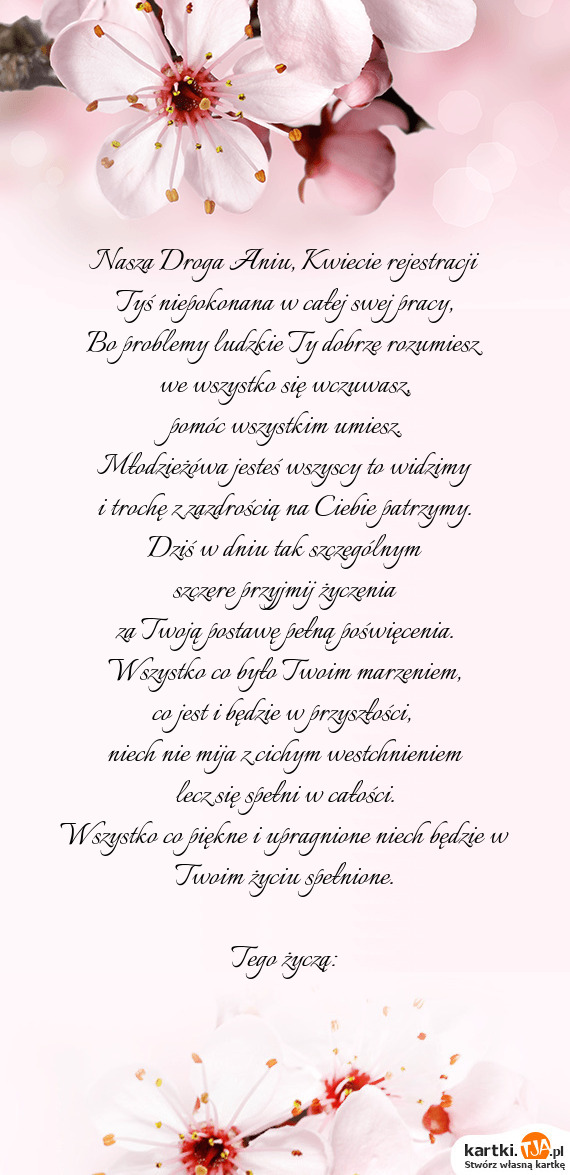 Nasza Droga Aniu, Kwiecie rejestracji
Tyś niepokonana w całej swej pracy,
Bo problemy ludzkie Ty dobrze rozumiesz
we wszystko się wczuwasz,
pomóc wszystkim umiesz.
Młodzieżówa jesteś wszyscy to widzimy
i trochę z zazdrością na Ciebie patrzymy.
Dziś w dniu tak szczególnym
szczere przyjmij życzenia
za Twoją postawę pełną poświęcenia.
Wszystko co było Twoim marzeniem,
co jest i będzie w przyszłości,
niech nie mija z cichym westchnieniem
lecz się spełni w całości.
Wszystko co piękne i upragnione niech będzie w
Twoim życiu spełnione.
Tego życzą:
kartki.TJA.pl
Stwórz własną kartkę